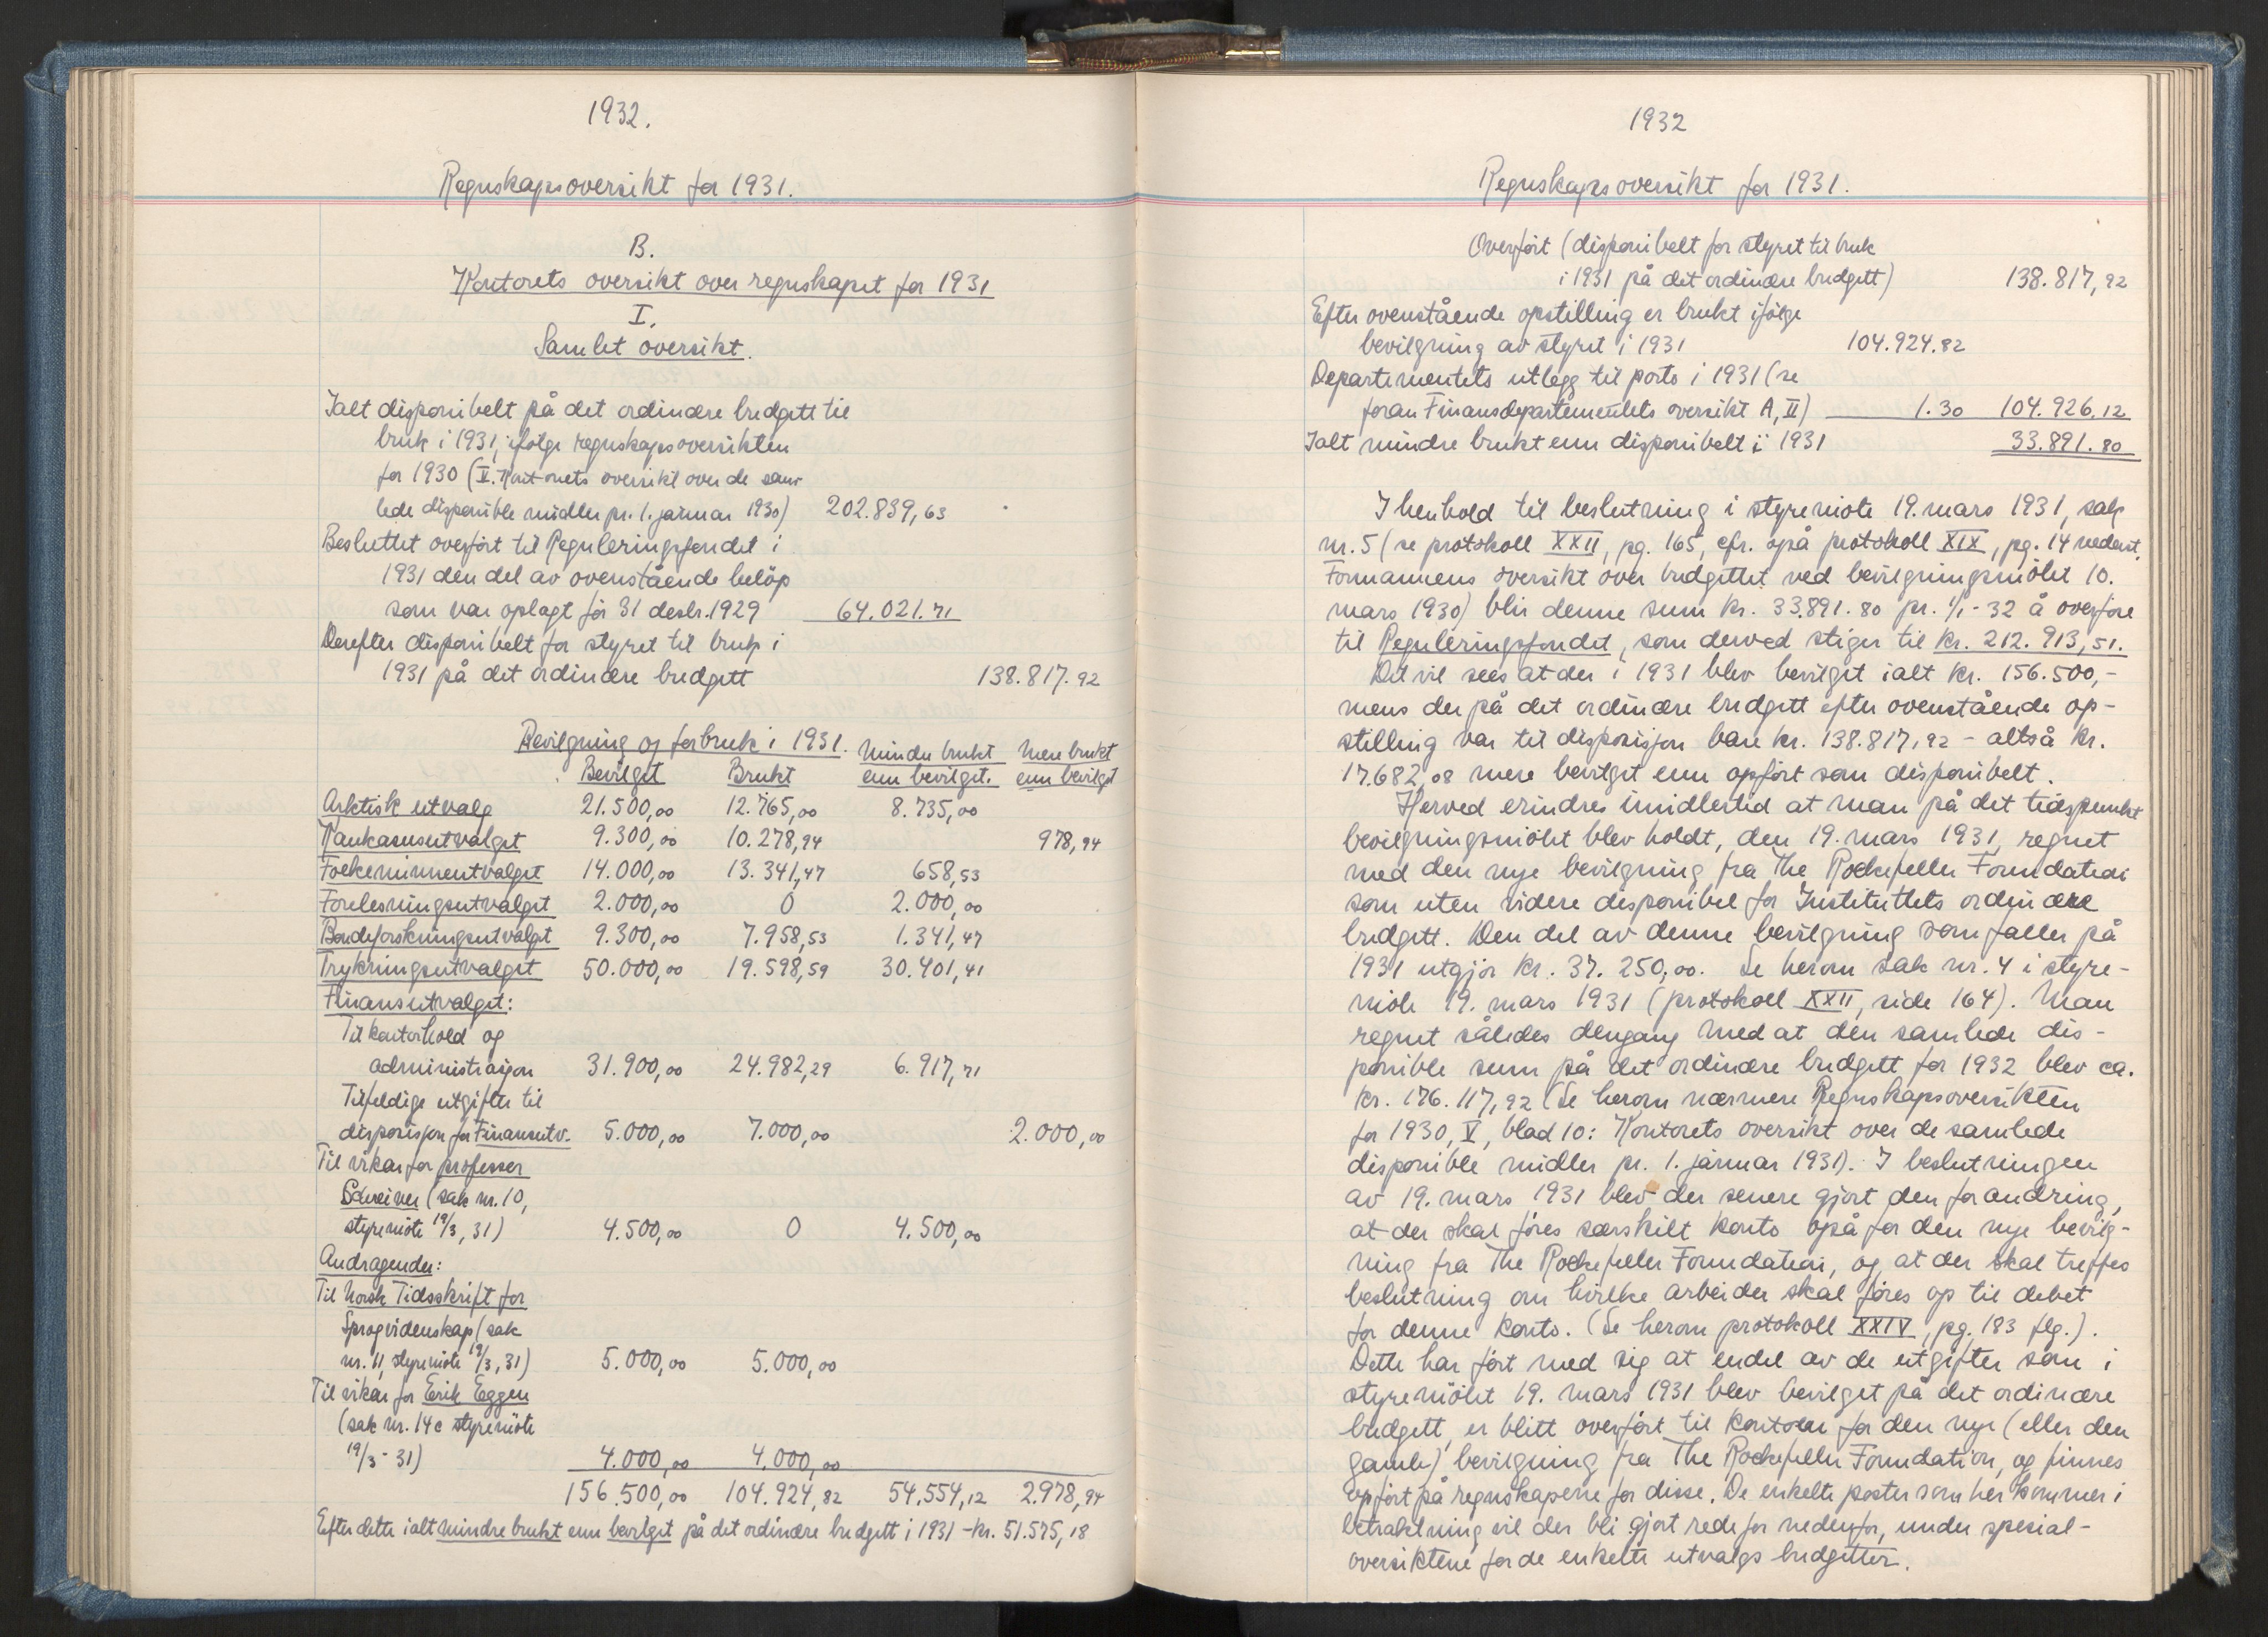 1932.
Regnskapsoversikt for 1931.
B.
Kontorets oversikt over regnskapet for 1931
I.
Samlet oversikt.
Ialt disponibelt på det ordinære budgett til
bruk i 1931, ifølge regnskapsoversikten
for 1930 (V. Kontorets oversikt over de sam-
lede disponible midler pr. 1. januar 1930) 202.839,63
Besluttet overført til Reguleringsfondet i
1931 den del av ovenstående beløp
som var oplagt før 31 desbr. 1929 64.021.71
Derefter disponibelt for styret til bruk i
1931 på det ordinære budgett 138.817.92
Bevilgning og forbruk i 1931. Mindre brukt Mere brukt
Bevilget Brukt enn bevilget. enn bevilget
Arktisk utvalg 21.500,00 12.765,00 8.735,00
Kaukasusutvalget 9.300,00 10.278,94 978,94
Folkeminneutvalget 14.000,00 13.341,47 658,53
Forelesningsutvalget 2.000,00 0 2.000,00
Bondeforskningsutvalget 9.300,00 7.958,53 1.341,47
Trykningsutvalget 50.000,00 19.598,59 30.401,41
Finansutvalget:
Til kontorhold og
administrasjon 31.900,00 24.982,29 6.917,71
Tilfeldige utgifter til
disposisjon for Finansutv. 5.000,00 7.000,00 2.000,00
Til vikar for professor
Schreiner (sak nr. 10,
styremöte 19/3, 31) 4.500,00 0 4.500,00
Andragender:
Til Norsk Tidsskrift for
Sprogvidenskap (sak
nr. 11, styremöte 19/3, 31) 5.000,00 5.000,00
Til vikar for Erik Eggen
(sak nr. 14c styremöte
19/3 - 31) 4.000,00 4.000,00
156.500,00 104.924,82 54.554,12 2.978,94
Efter dette ialt mindre brukt enn bevilget på det ordinære budgett i 1931 - kr. 51.575,18
1932
Regnskapsoversikt for 1931.
Overført (disponibelt for styret til bruk
i 1931 på det ordinære budgett) 138.817,92
Efter ovenstående opstilling er brukt ifølge
bevilgning av styret i 1931 104.924.82
Departementets utlegg til porto i 1931 (se
foran Finansdepartementets oversikt A, II) 1.30 104.926,12
Ialt mindre brukt enn disponibelt i 1931 33.891.80
I henhold til beslutning i styremöte 19. mars 1931, sak
nr. 5 (se protokoll XXII, pg. 165, cfr. også protokoll XIX, pg. 14 nederst,
Formannens oversikt over budgettet ved bevilgningsmötet 10.
mars 1930) blir denne sum kr. 33.891.80 pr. 1/1 - 32 å overføre
til Reguleringsfondet, som derved stiger til kr. 212.913,51.
Det vil sees at der i 1931 blev bevilget ialt kr. 156.500,-
mens der på det ordinære budgett efter ovenstående op-
stilling var til disposisjon bare kr. 138.817,92 - altså kr.
17.682,08 mere bevilget enn opført som disponibelt.
Herved erindres imidlertid at man på det tidspunkt
bevilgningsmötet blev holdt, den 19. mars 1931, regnet
med den nye bevilgning fra The Rockefeller Foundation
som uten videre disponibel for Instituttets ordinære
budgett. Den del av denne bevilgning som faller på
1931 utgjör kr. 37.250,00. Se herom sak nr. 4 i styre-
möte 19. mars 1931 (protokoll XXII, side 164). Man
regnet således dengang med at den samlede dis-
ponible sum på det ordinære budgett for 1932 blev ca.
kr. 176.117,92 (Se herom nærmere Regnskapsoversikten
for 1930, V, blad 10: Kontorets oversikt over de samlede
disponible midler pr. 1. januar 1931). I beslutningen
av 19. mars 1931 blev der senere gjort den forandring,
at der skal føres særskilt konto også for den nye bevilg-
ning fra The Rockefeller Foundation, og at der skal treffes
beslutning om hvilke arbeider skal føres op til debet
for denne konto. (Se herom protokoll XXIV, pg. 183 flg.).
Dette har ført med sig at endel av de utgifter som i
styremötet 19. mars 1931 blev bevilget på det ordinære
budgett, er blitt overført til kontoen for den nye (eller den
gamle) bevilgning fra The Rockefeller Foundation, og finnes
opført på regnskapene for disse. De enkelte poster som her kommer i
betraktning vil der bli gjort rede for nedenfor, under spesial-
oversiktene for de enkelte utvalgs budgetter.